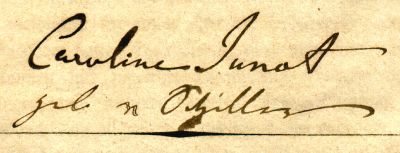 Caroline Junot
geb v Schiller